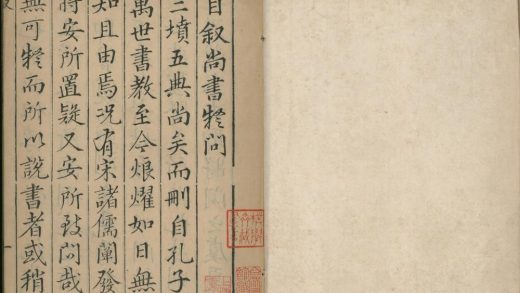 自叙尚書疑問
三墳五典尚矣而刪自孔子
萬世書教至今烺燿如日無
知且由焉况有宋諸儒闡發
將安所置疑又安所致問哉
無可疑而所以說書者或稍